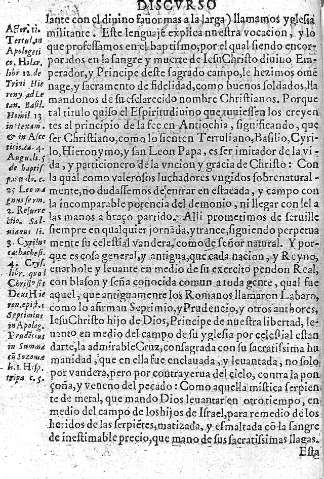 DISCVRSO
lante con el diuino fauor mas a la larga) llamamos yglesia
militante. Este lenguaje explica nuestra vocacion, y lo
que professamos en el baptismo, por el qual siendo encor-
porados en la sangre y muerte de IesuChristo diuino Em-
perador, y Principe deste sagrado campo, le hezimos ome
nage, y sacramento de fidelidad, como buenos soldados, lla
mandonos de su esclarecido nombre Christianos. Porque
tal titulo quiso el Espiritudiuino que tuuiessen los creyen
tes al principio de la fee en Antiochia, significando, que
ser Christiano, como lo sienten Tertuliano, Basilio, Cyri-
lo, Hieronymo, y san Leon Papa, es ser imitador de la vi-
da, y particionero de la vncion y gracia de Christo: Con
la qual como valerosos luchadores vngidos sobrenatural-
mente, no dudassemos de entrar en estacada, y campo con
la incomparable potencia del demonio, ni llegar con el a
las manos a braço partido. Alli prometimos de seruille
siempre en qualquier jornada, y trance, siguiendo perpetuame
te su celestial vandera, como de señor natural. Y por-
que es cosa general, y antigua, que cada nacion, y Reyno,
enarbole y leuante en medio de su exercito pendon Real,
con blason y seña conocida comun a toda gente, qual fue
aquel, que antiguamente los Romanos llamaron Labaro,
como lo afirman Septimio, y Prudencio, y otros authores,
IesuChristo hijo de Dios, Principe de nuestra libertad, le-
uanto en medio del campo de su yglesia por celestial estan
darte, la admirable Cruz, consagrada con su sacratissima hu
manidad, que en ella fue enclauada, y leuantada, no solo
por vandera, pero por contrayerua del ciclo, contra la pon
çoña, y veneno del pecado: Como aquella mistica serpien
te de metal, que mando Dios leuantar en otro tiempo, en
medio del campo de los hijos de Israel, para remedio de los
heridos de las serpiẽtes, matizada, y esmaltada cõ la sangre
de inestimable precio, que mano de sus sacratissimas llagas.
Esta
Actor. 11.
Tertul. in
Apologeti
co, Hilar.
libr 12. de
Trini Hie
Basil.
Homil 13